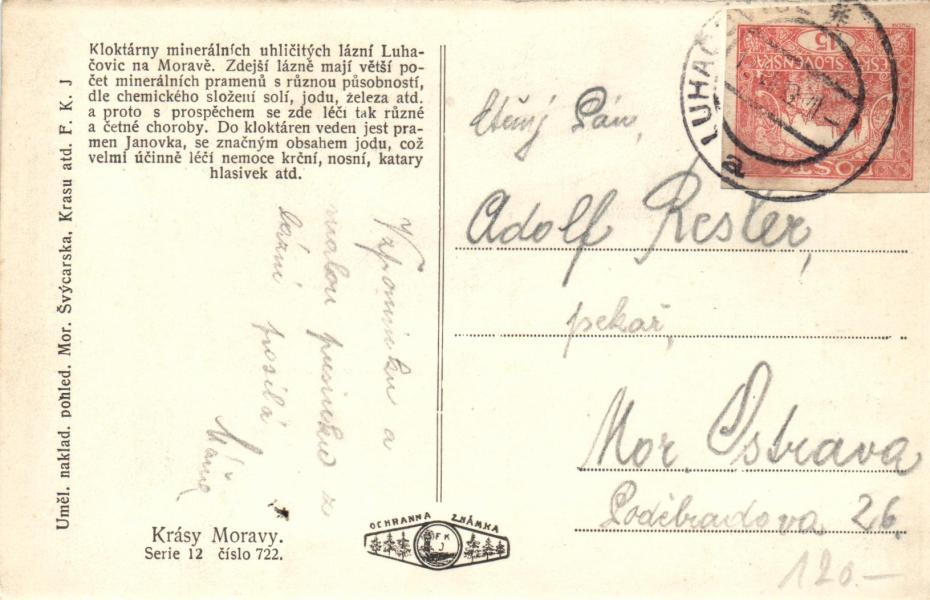 Kloktárny minerálních uhličitých lázní Luha-
čovic na Moravě. Zdejší lázně mají větší po-
čet minerálních pramenů s různou působností,
dle chemického složení solí, jodu, železa atd.
a proto s prospěchem se zde léčí tak různé
a četné choroby. Do kloktáren veden jest pra-
men Janovka, se značným obsahem jodu, což
velmi účinně léčí nemoce krční, nosní, katary
hlasivek atd.
Uměl. naklad. pohled. Mor. Švýcarska, Krasu atd. F. K. J
Vzpomínku a
malou
lázní posílá
Krásy Moravy.
Serie 12 číslo 722.
OCHRANNA ZNÁMKA
F K
J
LUHAČOVICE
a
15
ČESKO-SLOVENSKÁ
POŠTA
Ctěný Pán,
Adolf Resler,
pekař,
Mor. Ostrava
Poděbradova 26
120.—